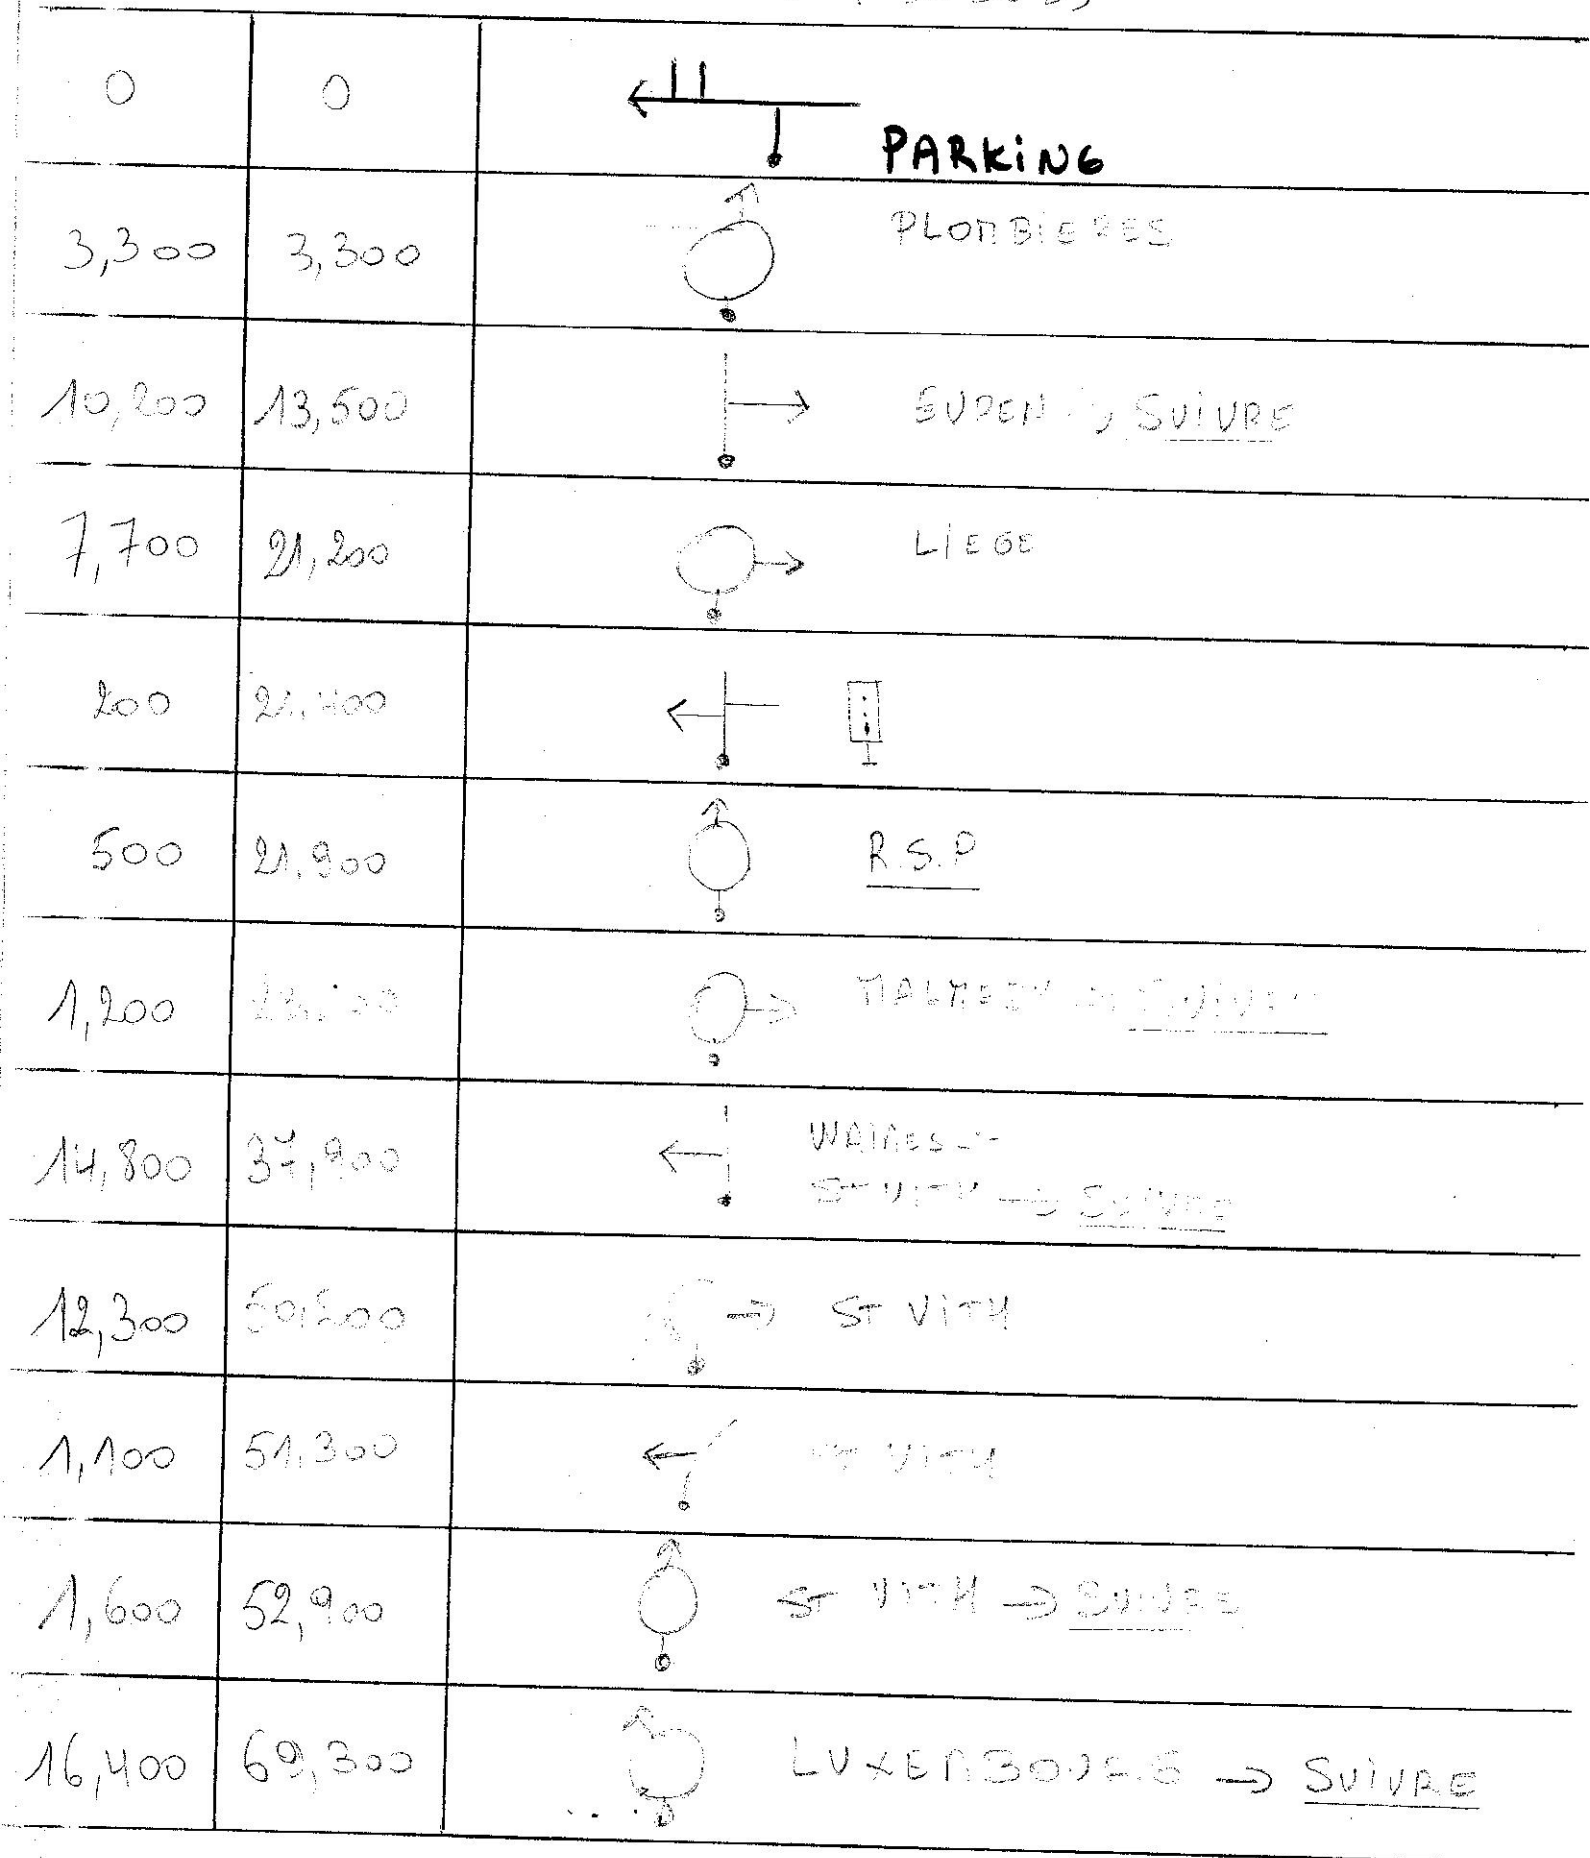 0 0
PARKING
3,300 3,300 PLOMBIERES
10,200 13,500 EUPEN → SUIVRE
7,700 21,200 LIEGE
200 21,400
500 21.900 R.S.P
1,200 MALMEDY → SUIVRE
14,800 37,900 WAIMES
ST VITH → SUIVRE
12,300 50,200 ST VITH
1,100 51,300 ST VITH
1,600 52,900 ST VITH → SUIVRE
16,400 69,300 LUXEMBOURG → SUIVRE